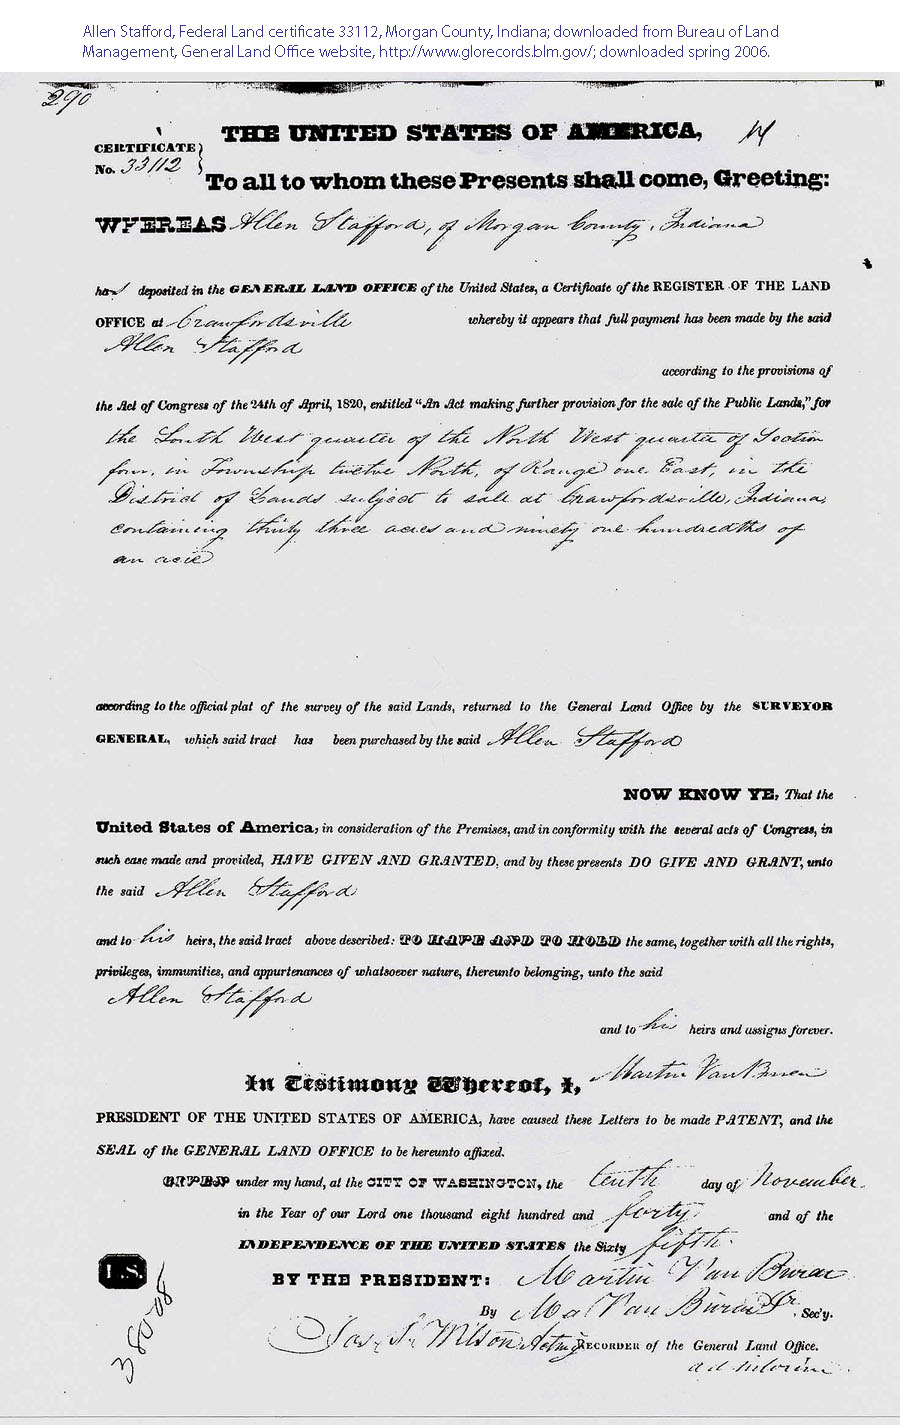 Allen Stafford, Federal Land certificate 33112, Morgan County, Indiana; downloaded from Bureau of Land
Management, General Land Office website, http://www.glorecords.blm.gov/; downloaded spring 2006.
290
THE UNITED STATES OF AMERICA,
CERTIFICATE
No. 33112
To all to whom these Presents shall come, Greeting:
WHEREAS Allen Stafford, of Morgan County, Indiana
ha deposited in the GENERAL LAND OFFICE of the United States, a Certificate of the REGISTER OF THE LAND
OFFICE at Crawfordsville whereby it appears that full payment has been made by the said
Allen Stafford
according to the provisions of
the Act of Congress of the 24th of April, 1820, entitled "An Act making further provision for the sale of the Public Lands," for
the South West quarter of the North West quarter of Section
four, in Township twelve North, of Range one East, in the
District of Lands subject to sale at Crawfordsville, Indiana,
containing thirty three acres and ninety one hundredths of
an acre
according to the official plat of the survey of the said Lands, returned to the General Land Office by the SURVEYOR
GENERAL, which said tract has been purchased by the said Allen Stafford
NOW KNOW YE, That the
United States of America, in consideration of the Premises, and in conformity with the several acts of Congress, in
such case made and provided, HAVE GIVEN AND GRANTED, and by these presents DO GIVE AND GRANT, unto
the said Allen Stafford
and to his heirs, the said tract above described: TO HAVE AND TO HOLD the same, together with all the rights,
privileges, immunities, and appurtenances of whatsoever nature, thereunto belonging, unto the said
Allen Stafford
and to his heirs and assigns forever.
In Testimony Whereof, I, Martin Van Buren
PRESIDENT OF THE UNITED STATES OF AMERICA, have caused these Letters to be made PATENT, and the
SEAL of the GENERAL LAND OFFICE to be hereunto affixed.
GIVEN under my hand, at the CITY OF WASHINGTON, the tenth day of November
in the Year of our Lord one thousand eight hundred and forty and of the
INDEPENDENCE OF THE UNITED STATES the Sixty fifth.
L.S.
BY THE PRESIDENT: Martin Van Buren
By M Van Buren Jr. Sec'y.
Jos. S. Wilson Acting RECORDER of the General Land Office.
ad interim